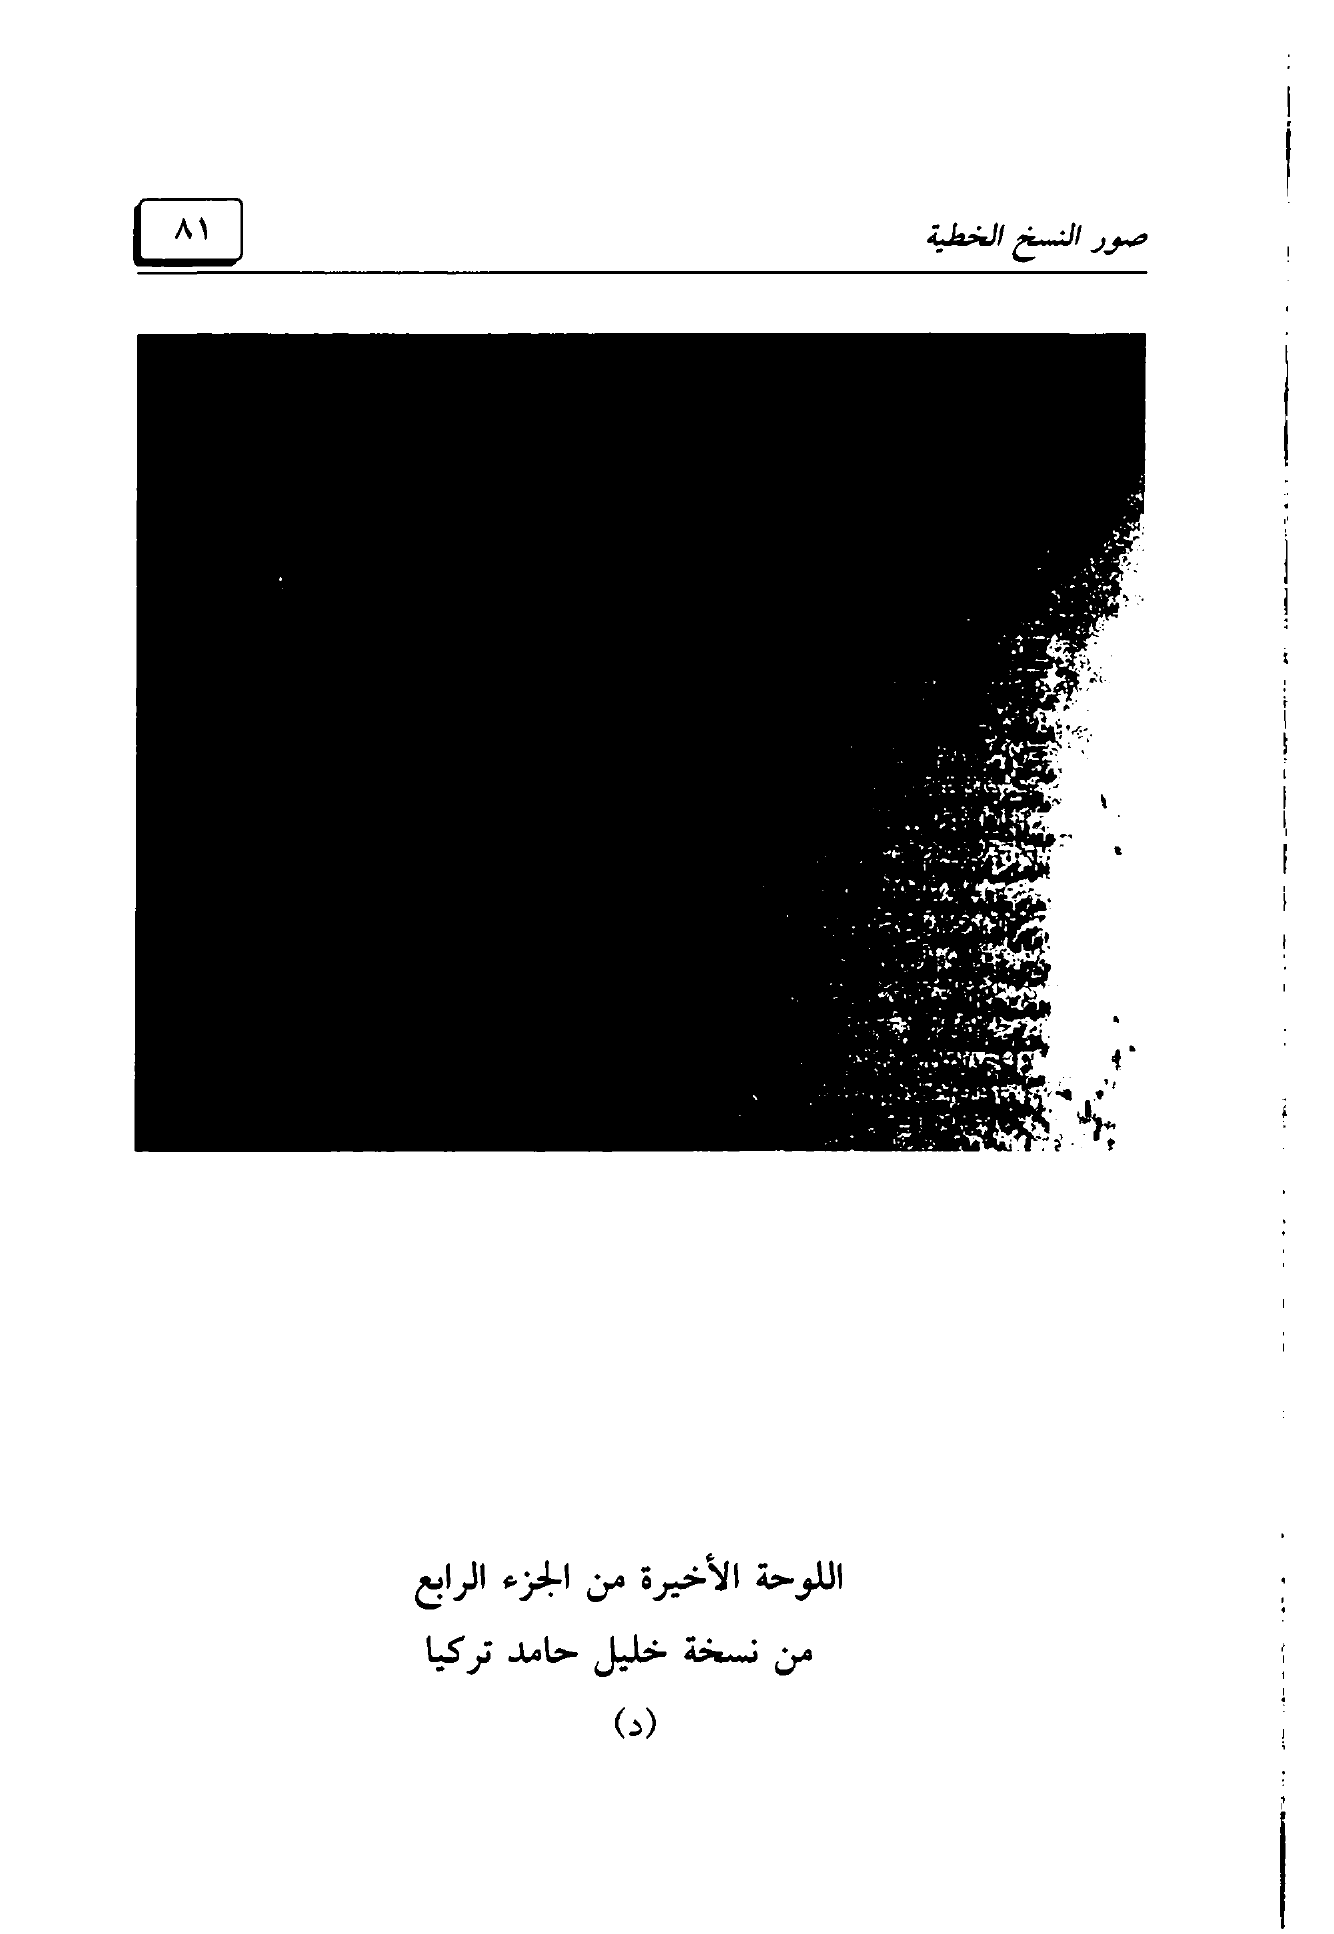 صور النسخ الخطية
٨١
اللوحة الأخيرة من الجزء الرابع
من نسخة خليل حامد تركيا
(د)